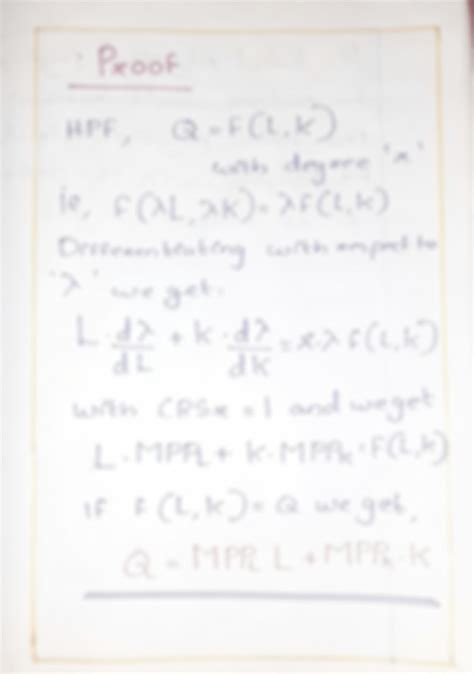 Proof
HPF, Q = F(L, K)
with degree 'x'
ie, F(λL, λK) = λF(L, K)
Differentiating with respect to
'λ' we get.
L · dλ/dL + K · dλ/dK = x·λ F(L, K)
with CRS x = 1 and we get
L · MPPL + K · MPPK = F(L, K)
IF F(L, K) = Q we get,
Q = MPPL L + MPPK · K